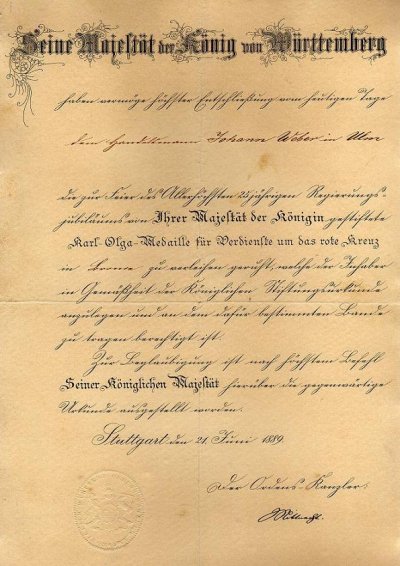 Seine Majestät der König von Württemberg
haben vermöge höchster Entschließung vom heutigen Tage
dem Handelsmann Johann Weber in Ulm
die zur Feier des Allerhöchsten 25jährigen Regierungs-
jubiläums von Ihrer Majestät der Königin gestiftete
Karl-Olga-Medaille für Verdienste um das rote Kreuz
in Bronce zu verleihen geruht, welche der Inhaber
in Gemäßheit der Königlichen Stiftungsurkunde
anzulegen und an dem dafür bestimmten Bande
zu tragen berechtigt ist.
Zur Beglaubigung ist nach höchstem Befehl
Seiner Königlichen Majestät hierüber die gegenwärtige
Urkunde ausgestellt worden.
Stuttgart den 21. Juni 1889.
Der Ordens-Kanzler:
Mittnacht.